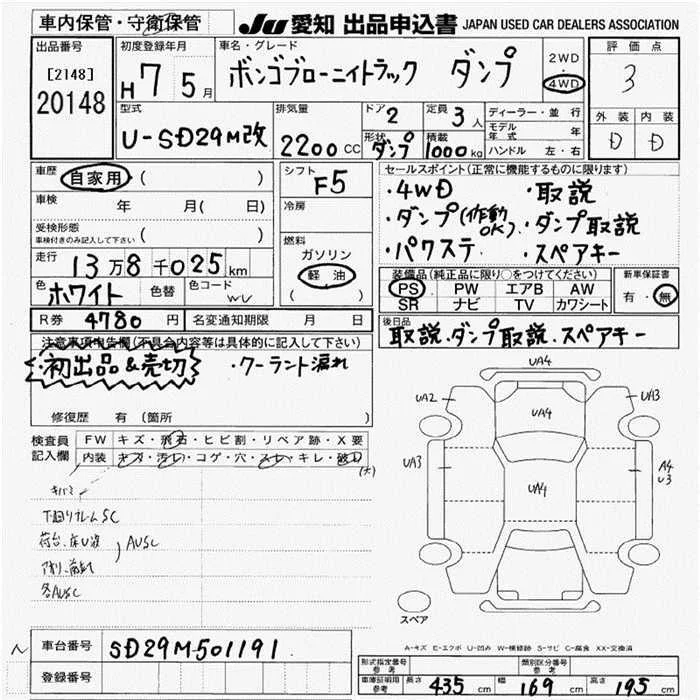 車内保管・守衛保管
JU 愛知 出品申込書 JAPAN USED CAR DEALERS ASSOCIATION
出品番号
[2148]
20148
初度登録年月
H7 5月
車名・グレード
ボンゴブローニィトラック ダンプ
2WD
4WD
評価点
3
外装 内装
D D
型式
U-SD29M改
排気量
2200cc
ドア
2
形状
ダンプ
定員
3人
積載
1000kg
ディーラー・並行
モデル年式 年
ハンドル 左・右
車歴
自家用 ( )
車検 年 月( 日)
受検形態
車検付きのみ記入して下さい ( )
走行
13万8千025km
色
ホワイト
色替
色コード
WU
シフト
F5
冷房
燃料
ガソリン
軽油
( )
R券 4780円 名変通知期限 月 日
セールスポイント(正常に機能するものに限ります)
・4WD ・取説
・ダンプ(作動OK)・ダンプ取説
・パワステ ・スペアキー
装備品(純正品に限り○をつけてください)
PS PW エアB AW
SR ナビ TV カワシート
新車保証書
有・無
後日品
取説.ダンプ取説.スペアキー
注意事項申告欄(不具合内容等は具体的に記入して下さい)
・初出品&売切 ・クーラント漏れ
修復歴 有 (箇所 )
検査員
記入欄
FW キズ・飛石・ヒビ割・リペア跡・X要
内装 キズ・汚レ・コゲ・穴・スレ・キレ・破レ
(大)
下廻りフレームSC
荷台、床U波
AUSC
各AUSC
UA4
UA2
UA3
UA4
UA3
A4
U3
UA4
スペア
A-キズ E-エクボ U-凹み W-補修跡 S-サビ C-腐食 XX-交換済
車台番号 SD29M-501191
登録番号
形式指定番号
参考
類別区分番号
参考
車庫証明用
参考
長さ 435cm 幅 169cm 高さ 195cm